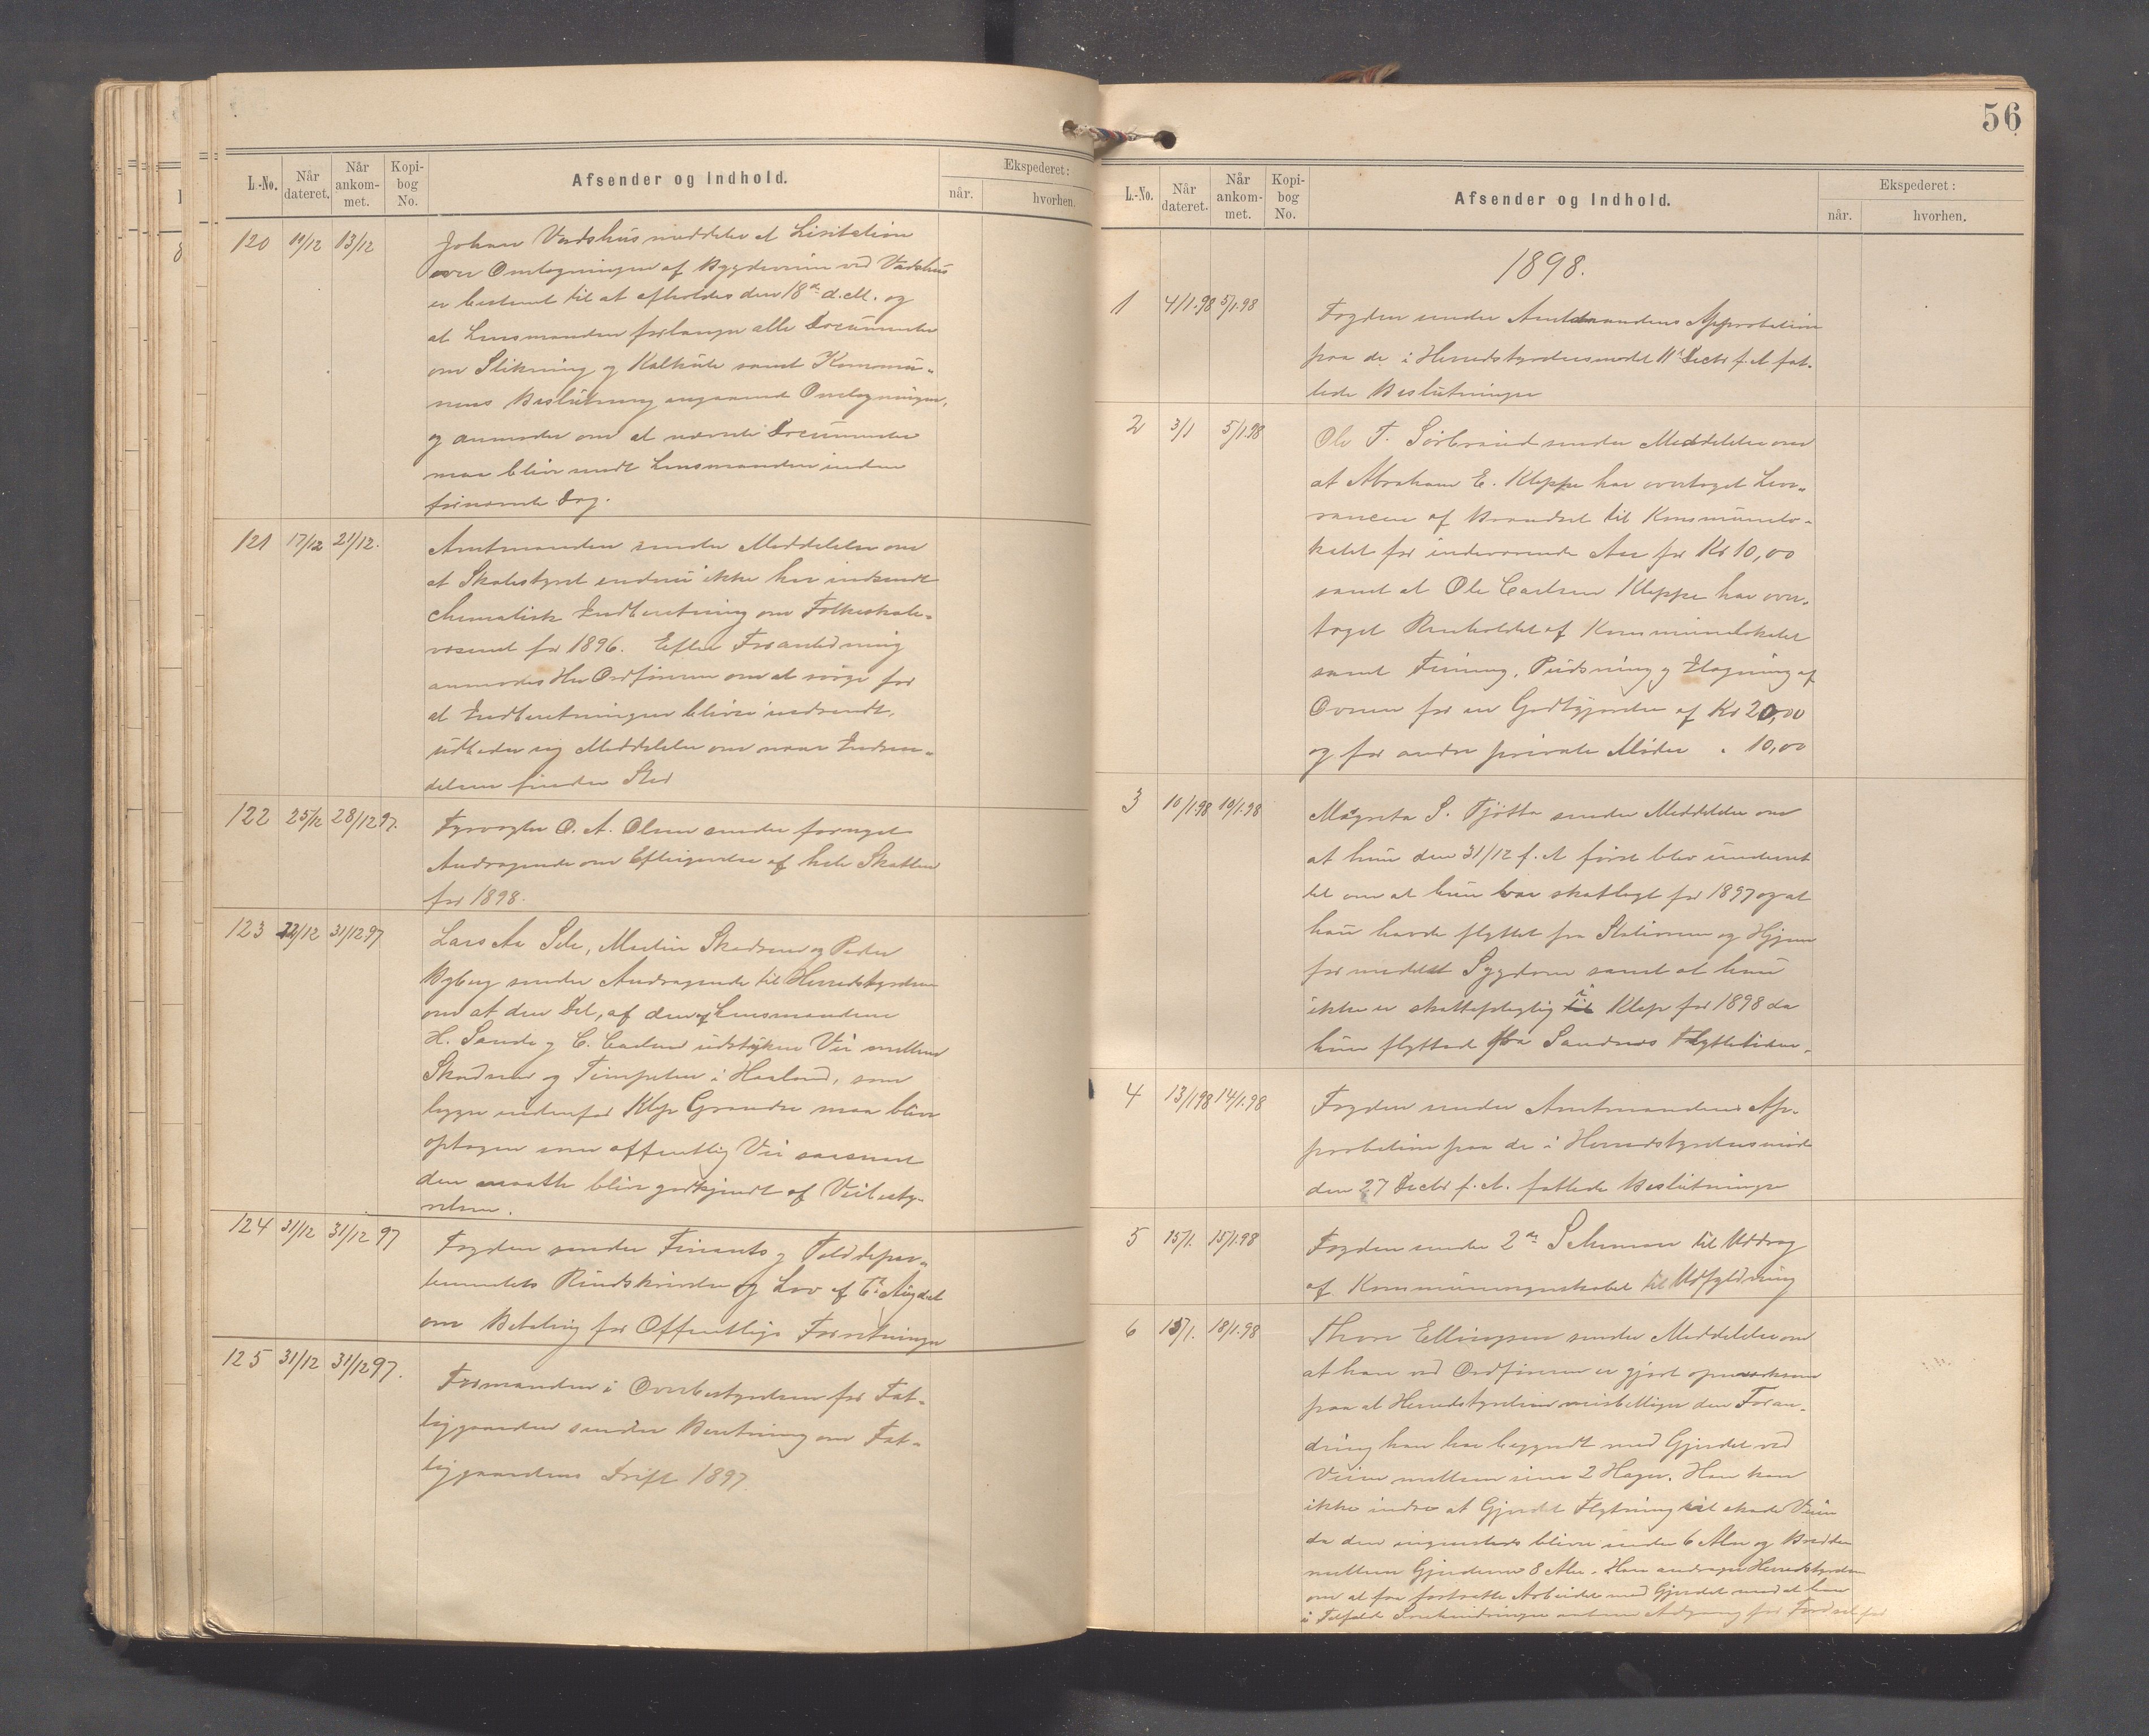 L.-No. Når dateret. Når ankommet. Kopibog No. Afsender og Indhold. Ekspederet: når. hvorhen.
120 10/12 13/12 Johan Vadshus meddeler at Lisitation
over Omlægningen af Bygdeveien ved Vadshus
er bestemt til at afholdes den 18de d.M. og
at Lensmanden forlanger alle Documenter
om Stikning og Kalkule samt Kommu-
nens Beslutning angaaende Omlægningen,
og anmoder om at nævnte Documenter
maa blive sendt Lensmanden inden
førnævnte Dag.
121 17/12 21/12. Amtmanden sender Meddelelse om
at Skolestyret endnu ikke har indsendt
chematisk Indberetning om Folkeskole-
væsenet for 1896. Efter Foranledning
anmodes Her Ordføreren om at sørge for
at Indberetningen bliver indsendt,
udbeder sig Meddelelse om naar Indsen-
delsen finder Sted
122 25/12 28/12 97. Fyrvogter O. A. Olsen sender fornyet
Andragende om Eftergivelse af hele Skatten
for 1898.
123 22/12 31/12 97 Lars Aa Sele, Martin Skadsem og Peder
Byberg sender Andragende til Herredstyrelsen
om at den Del, af den af Lensmandene
H. Sande og C. Carlsen udstukne Vei mellem
Skadsem og Timpelen i Haaland, som
ligger indenfor Klep Grændse maa blive
optagen som offentlig Vei saasnart
den maatte blive godkjendt af Veibesty-
relsen.
124 31/12 31/12 97 Fogden sender Finants og Tolddepar-
tementets Rundskrivelse og Lov af 6te Aug d.A
om Betaling for Offentlige Forretninger
125 31/12 31/12 97. Formanden i Overbestyrelsen for Fat-
tiggaarden sender Beretning om Fat-
tiggaardens Drift 1897.
56
L.-No. Når dateret. Når ankommet. Kopibog No. Afsender og Indhold. Ekspederet: når. hvorhen.
1898.
1 4/1.98 5/1.98 Fogden sender Amtmandens Approbation
paa de i Herredstyrelsesmødet 11te Decbr f.A fat-
tede Beslutninger
2 3/1 5/1.98 Ole T. Sørbraud sender Meddelelse om
at Abraham E. Kleppe har overtaget Leve-
rancen af Brændsel til Kommunelo-
kalet for indeværende Aar for Kr 10,00
samt at Ole Carlsen Kleppe har over-
taget Renholdet af Kommunelokalet
samt Fyring, Pudsning og Ilægning af
Ovnen for en Godtgjørelse af Kr 20,00
og for andre private Møder " 10,00
3 10/1.98 10/1.98 Magreta S. Tjøtta sender Meddelelse om
at hun den 31/12 f.A først blev underret
tet om at hun var skatlagt for 1897 og at
hun havde flyttet fra Stationen og Hjem
formedelst Sygdom samt at hun
ikke er skattepligtig i til Klep for 1898 da
hun flyttede fra Sandnæs Flyttetiden.
4 13/1 98 14/1.98 Fogden sender Amtmandens Ap-
probation paa de i Herredstyrelsesmøde
den 27 Decbr f.A. fattede Beslutninger
5 15/1. 15/1.98 Fogden sender 2de Schemaer til Uddrag
af Kommuneregnskabet til Udfyldning
6 15/1. 18/1.98 Thore Ellingsen sender Meddelelse om
at han ved Ordføreren er gjort opmærksom
paa at Herredstyrelsen misbilliger den Foran-
dring han har begyndt med Gjerdet ved
Veien mellem sine 2 Hager. Han kan
ikke indse at Gjerdet Flytning vil skade Veien
da den ingensteds bliver under 6 Alen og Bredden
mellem Gjerderne 8 Alen. Han andrager Herredstyrelsen
om at faa fortsætte Arbeidet med Gjerdet med at han
i Tilfælde Sneehindringer Adgang for Færdsel for